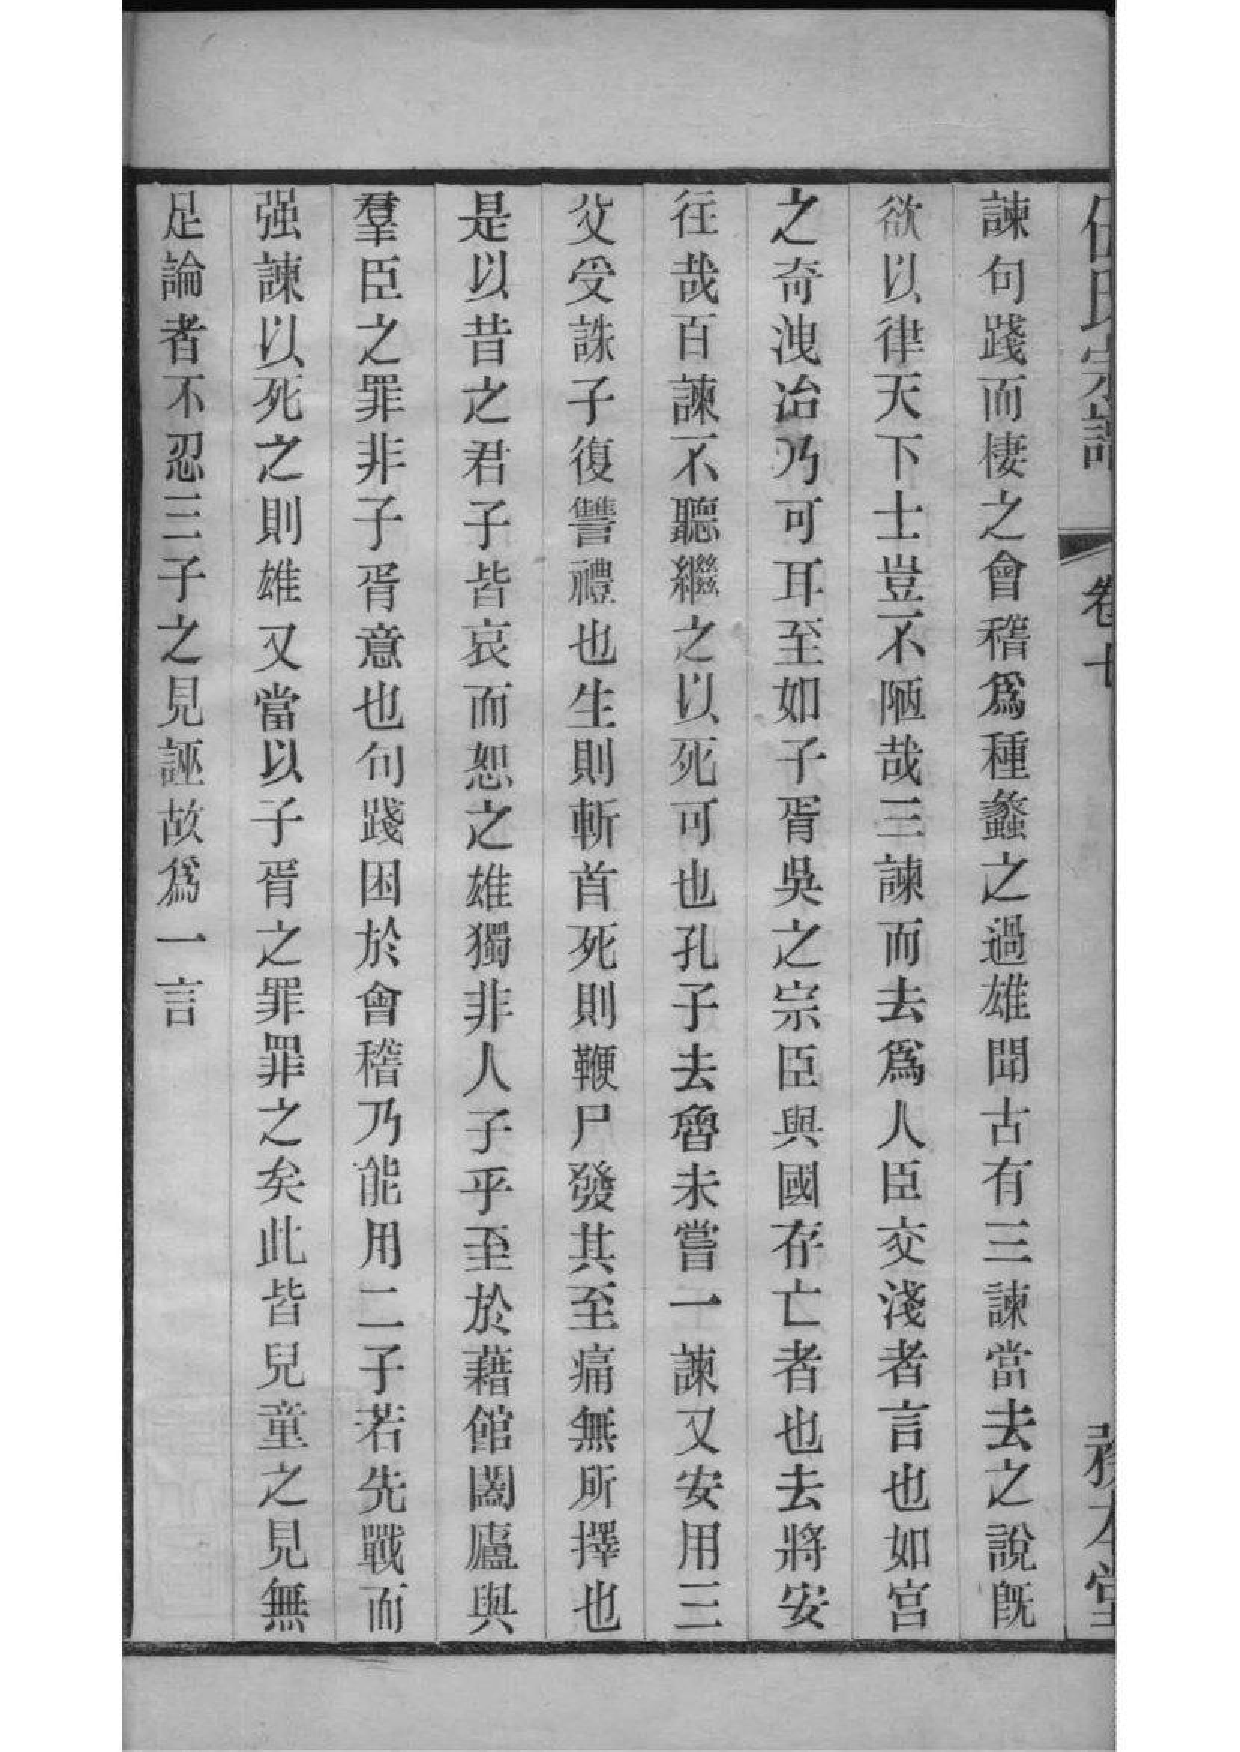 伍氏宗譜 卷十 務本堂
諫句踐而棲之會稽爲種蠡之過雄聞古有三諫當去之說旣
欲以律天下士豈不陋哉三諫而去爲人臣交淺者言也如宮
之奇洩冶乃可耳至如子胥吳之宗臣與國存亡者也去將安
往哉百諫不聽繼之以死可也孔子去魯未嘗一諫又安用三
父受誅子復讐禮也生則斬首死則鞭尸發其至痛無所擇也
是以昔之君子皆哀而恕之雄獨非人子乎至於藉館闔廬與
羣臣之罪非子胥意也句踐困於會稽乃能用二子若先戰而
强諫以死之則雄又當以子胥之罪罪之矣此皆兒童之見無
足論者不忍三子之見誣故爲一言